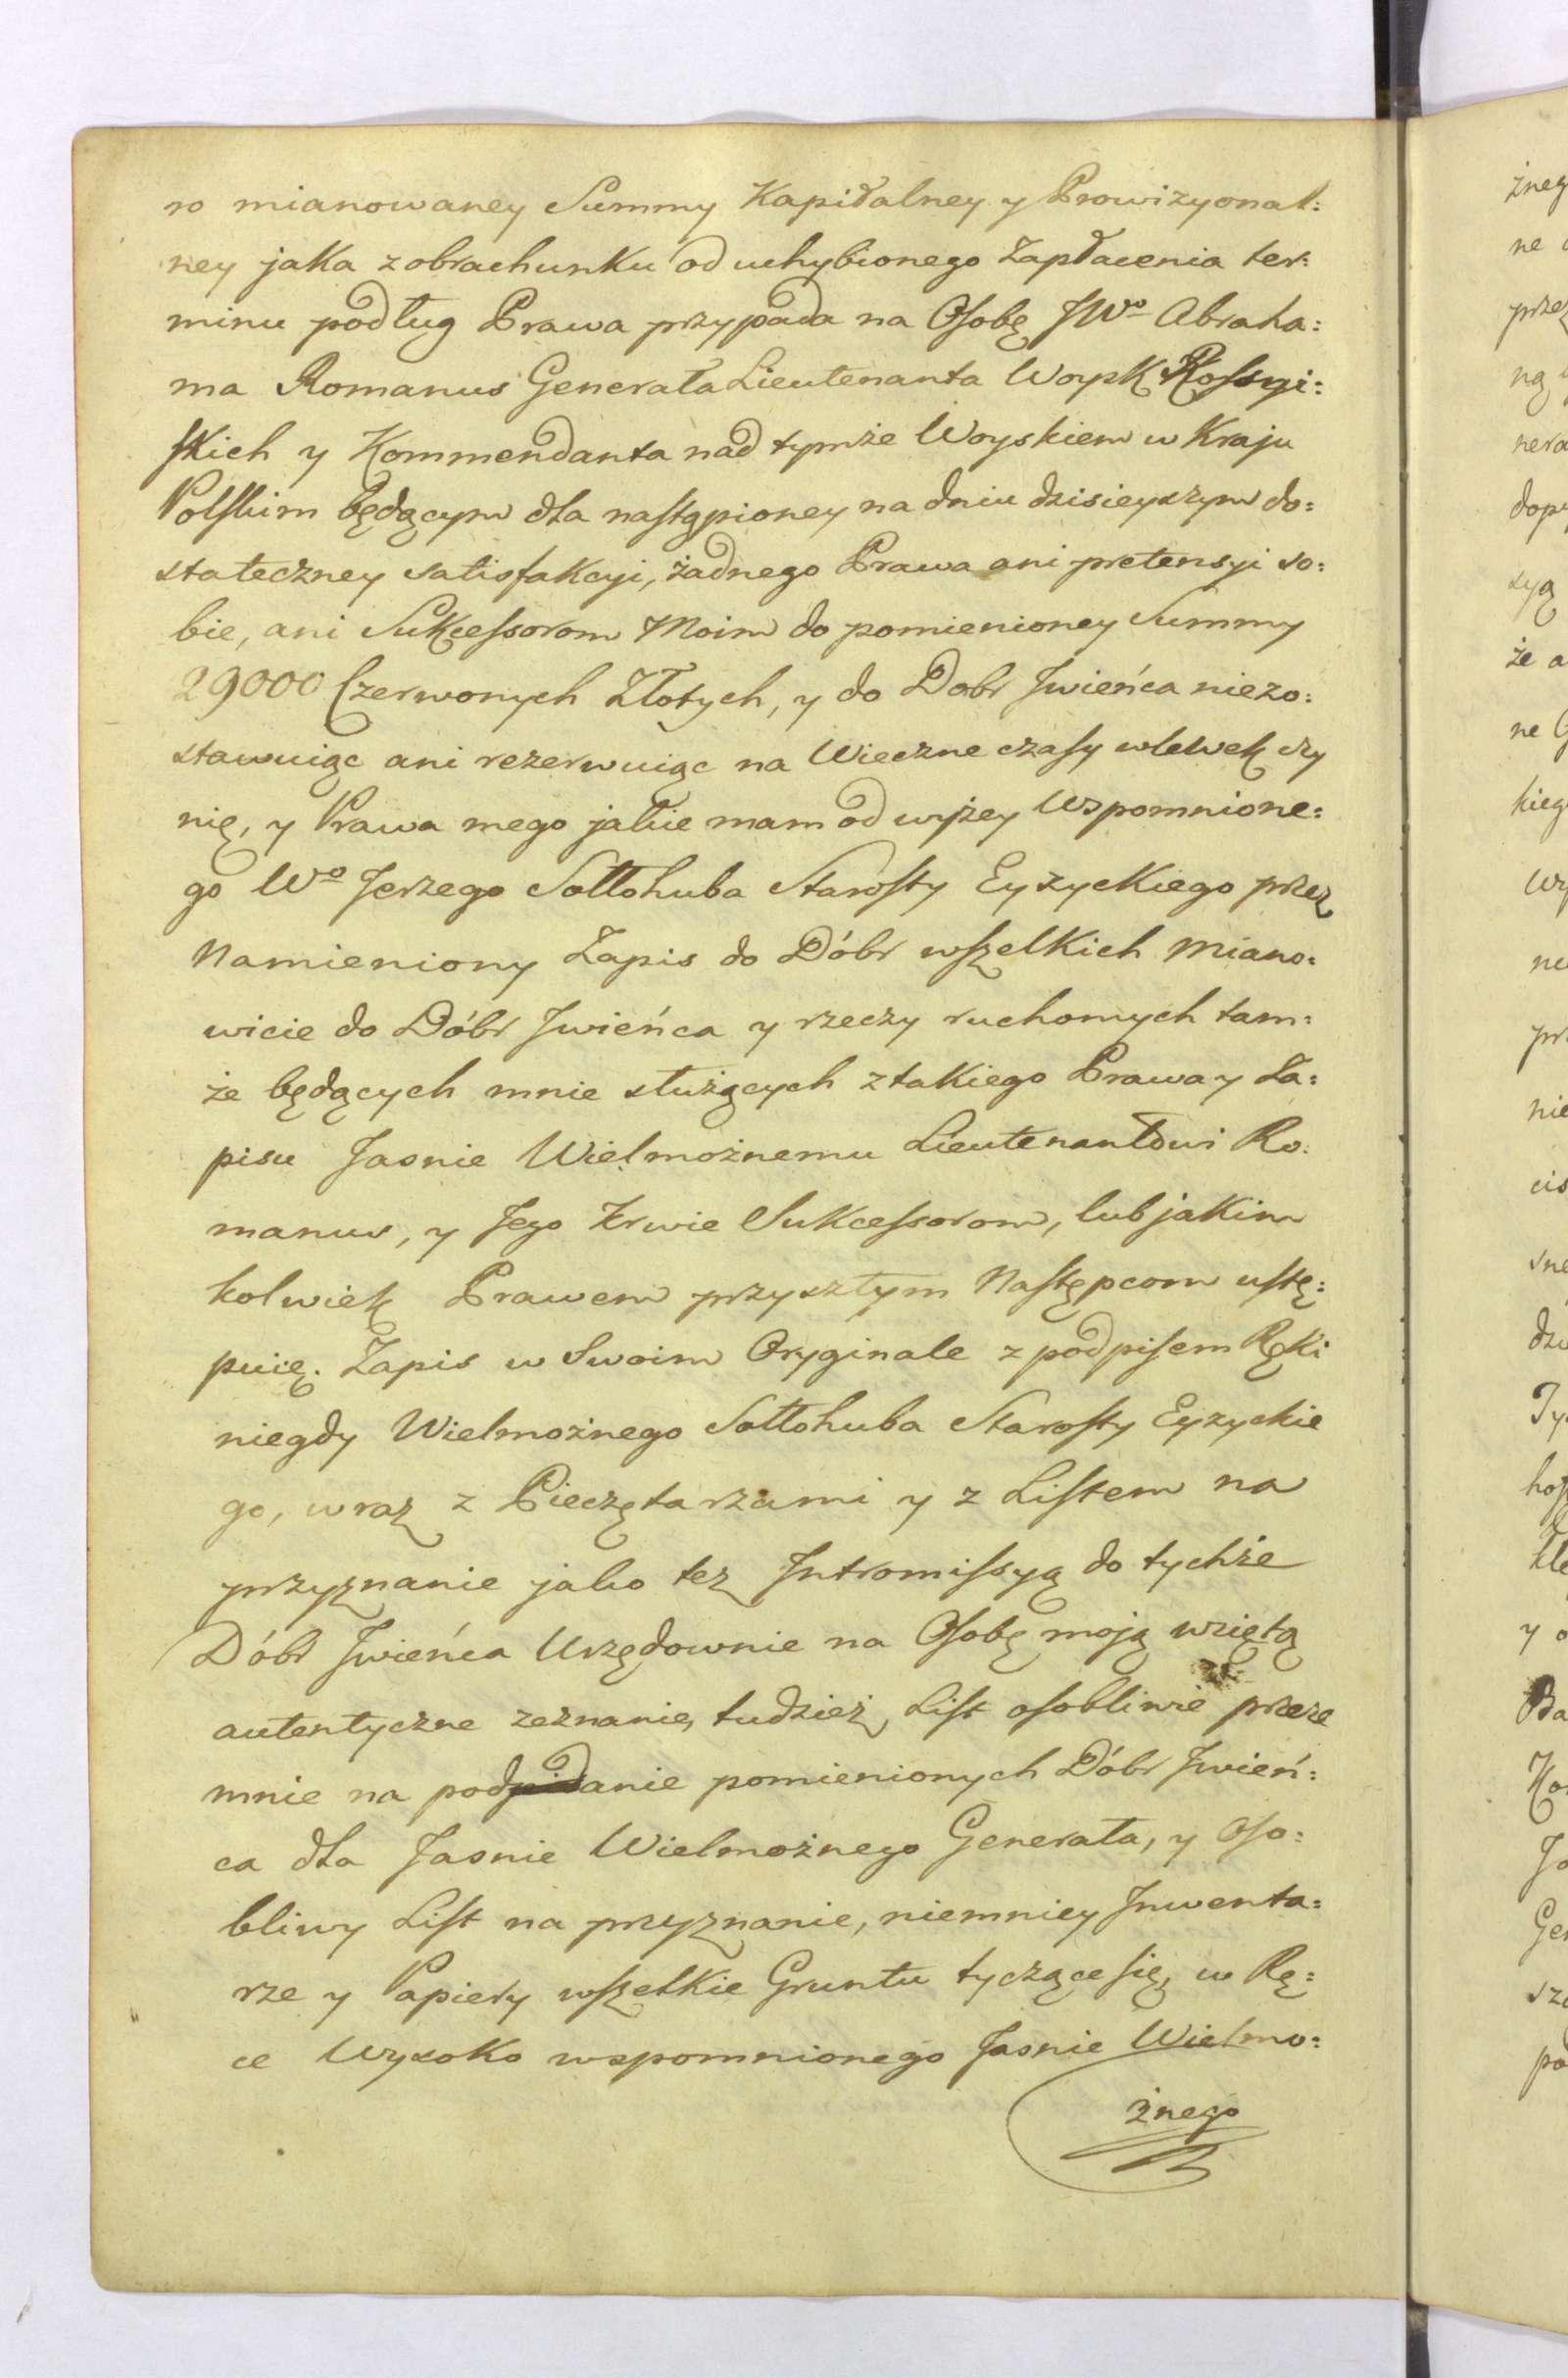 ro mianowaney Summy Kapitalney y Prowizyonal:
ney jaka z obrachunku od uchybionego Zapłacenia ter:
minu podług Prawa przypada na Osobę JWo Abraha:
ma Romanus Generała Lieutenanta Woysk Rossyi:
skich y Kommendanta nad tymże Woyskiem w Kraju
Polskim będącym dla nastąpioney na dniu dzisieyszym do:
stateczney satisfakcyi, żadnego Prawa ani pretensyi so:
bie, ani Sukcessorom Moim do pomienioney Summy
29000 Czerwonych Złotych, y do Dobr Jwieńca niezo:
stawuiąc ani rezerwuiąc na Wieczne czasy wlewek czy
nię, y Prawa mego jakie mam od wyżey Wspomnione:
go Wo Jerzego Sołłohuba Starosty Eyzyckiego przez
Namieniony Zapis do Dóbr wszelkich Miano:
wicie do Dóbr Jwieńca y rzeczy ruchomych tam:
że będących mnie służących z takiego Prawa y Za:
pisu Jasnie Wielmożnemu Lieutenantowi Ro:
manus, y Jego Krwie Sukcessorom, lub jakim
kolwiek Prawem przyszłym Następcom ustę:
puię. Zapis w Swoim Oryginale z podpisem Ręki
niegdy Wielmożnego Sołłohuba Starosty Eyzyckie
go, wraz z Pieczętarzami y z Listem na
przyznanie jako tez Intromissyą do tychże
Dóbr Jwieńca Urzędownie na Osobę moją wziętą
autentyczne zeznanie, tudzież List osobliwie przeze
mnie na poddanie pomienionych Dóbr Jwień:
ca dla Jasnie Wielmożnego Generała, y Oso:
bliwy List na przyznanie, niemniey Jnwenta:
rze y Papiery wszelkie Gruntu tyczące się, w Rę:
ce Wysoko wspomnionego Jasnie Wielmo:
żnego